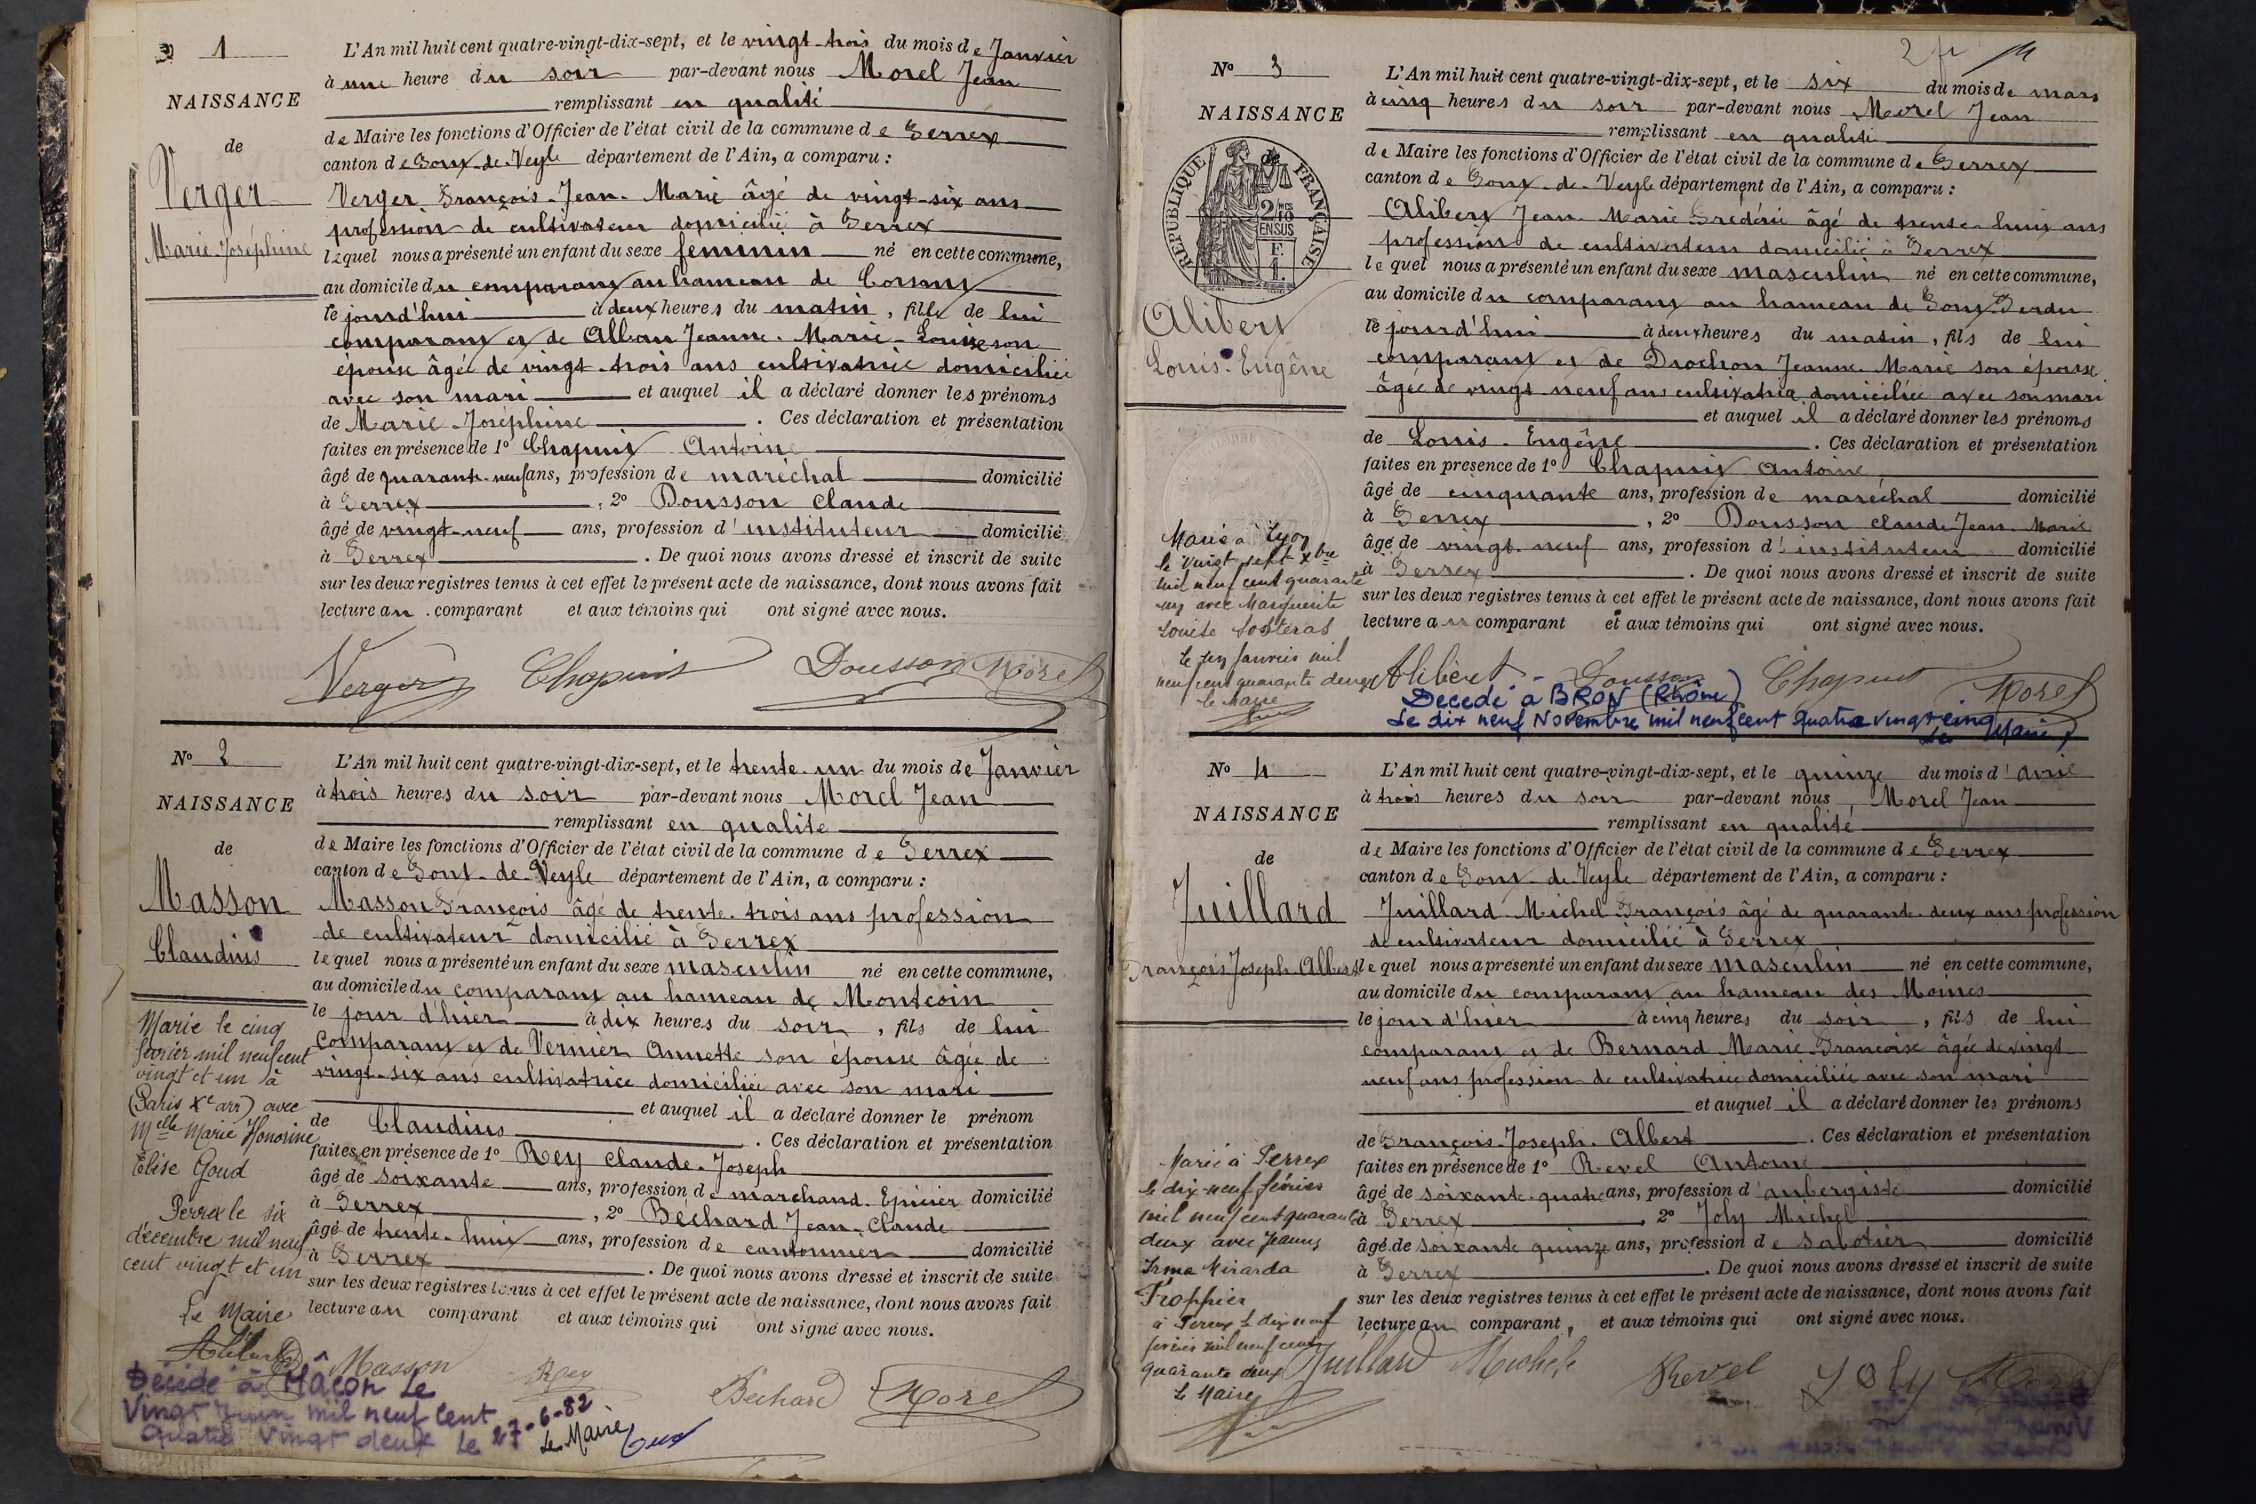 1
NAISSANCE
de
Verger
Marie-Joséphine
L'An mil huit cent quatre-vingt-dix-sept, et le vingt-trois du mois de Janvier
à une heure du soir par-devant nous Morel Jean
remplissant en qualité
de Maire les fonctions d'Officier de l'état civil de la commune de Perrex
canton de Pont-de-Veyle département de l'Ain, a comparu :
Verger François-Jean-Marie âgé de vingt-six ans
profession de cultivateur domicilié à Perrex
lequel nous a présenté un enfant du sexe feminin né en cette commune,
au domicile du comparant au hameau de Corsant
le jourd'hui à deux heures du matin, fille de lui
comparant et de Alban Jeanne-Marie-Louise son
épouse âgée de vingt-trois ans cultivatrice domiciliée
avec son mari et auquel il a déclaré donner les prénoms
de Marie-Joséphine . Ces déclaration et présentation
faites en présence de 1° Chapuis Antoine
âgé de quarante-neuf ans, profession de maréchal domicilié
à Perrex , 2° Dousson Claude
âgé de vingt-neuf ans, profession d'instituteur domicilié
à Perrex . De quoi nous avons dressé et inscrit de suite
sur les deux registres tenus à cet effet le présent acte de naissance, dont nous avons fait
lecture au comparant et aux témoins qui ont signé avec nous.
Verger Chapuis Dousson Morel
N° 2
NAISSANCE
de
Masson
Claudius
L'An mil huit cent quatre-vingt-dix-sept, et le trente-un du mois de Janvier
à trois heures du soir par-devant nous Morel Jean
remplissant en qualité
de Maire les fonctions d'Officier de l'état civil de la commune de Perrex
canton de Pont-de-Veyle département de l'Ain, a comparu :
Masson François âgé de trente-trois ans profession
de cultivateur domicilié à Perrex
lequel nous a présenté un enfant du sexe masculin né en cette commune,
au domicile du comparant au hameau de Montcoin
le jour d'hier à dix heures du soir, fils de lui
comparant et de Vernier Annette son épouse âgée de
vingt-six ans cultivatrice domiciliée avec son mari
et auquel il a déclaré donner le prénom
de Claudius . Ces déclaration et présentation
faites en présence de 1° Rey Claude-Joseph
âgé de soixante ans, profession de marchand Epicier domicilié
à Perrex , 2° Bechard Jean-Claude
âgé de trente-huit ans, profession de cantonnier domicilié
à Perrex . De quoi nous avons dressé et inscrit de suite
sur les deux registres tenus à cet effet le présent acte de naissance, dont nous avons fait
lecture au comparant et aux témoins qui ont signé avec nous.
Marié le cinq
février mil neuf cent
vingt et un à
(Paris Xe arr) avec
Melle Marie Honorine
Elise Goud
Perrex le six
décembre mil neuf
cent vingt et un
Le Maire
Alibert
Masson Rey Bechard Morel
Décédé à Mâcon le
Vingt Juin mil neuf cent
quatre vingt deux le 27-6-82
Le Maire
N° 3
NAISSANCE
de
RÉPUBLIQUE FRANÇAISE
2/10 MES EN SUS
F.
1.
Alibert
Louis-Eugêne
L'An mil huit cent quatre-vingt-dix-sept, et le six du mois de mars
à cinq heures du soir par-devant nous Morel Jean
remplissant en qualité
de Maire les fonctions d'Officier de l'état civil de la commune de Perrex
canton de Pont-de-Veyle département de l'Ain, a comparu :
Alibert Jean-Marie Frédéric âgé de trente-huit ans
profession de cultivateur domicilié à Perrex
lequel nous a présenté un enfant du sexe masculin né en cette commune,
au domicile du comparant au hameau de Pont-Perdu
le jourd'hui à deux heures du matin, fils de lui
comparant et de Drochon Jeanne-Marie son épouse
âgée de vingt-neuf ans cultivatrice domiciliée avec son mari
et auquel il a déclaré donner les prénoms
de Louis-Eugêne . Ces déclaration et présentation
faites en présence de 1° Chapuis Antoine
âgé de cinquante ans, profession de maréchal domicilié
à Perrex , 2° Dousson Claude Jean-Marie
âgé de vingt-neuf ans, profession d'instituteur domicilié
à Perrex . De quoi nous avons dressé et inscrit de suite
sur les deux registres tenus à cet effet le présent acte de naissance, dont nous avons fait
lecture au comparant et aux témoins qui ont signé avec nous.
Marié à Lyon
le vingt sept Xbre
mil neuf cent quarante
un avec Marguerite
Louise
Le dix Janvier mil
neuf cent quarante deux
le Maire
Alibert Dousson Chapuis Morel
Decedé à BRON (Rhône)
Le dix neuf Novembre mil neuf cent quatre vingt cinq
Le Maire
N° 4
NAISSANCE
de
Juillard
François Joseph Albert
L'An mil huit cent quatre-vingt-dix-sept, et le quinze du mois d'avril
à trois heures du soir par-devant nous, Morel Jean
remplissant en qualité
de Maire les fonctions d'Officier de l'état civil de la commune de Perrex
canton de Pont-de-Veyle département de l'Ain, a comparu :
Juillard Michel-François âgé de quarante-deux ans profession
de cultivateur domicilié à Perrex
lequel nous a présenté un enfant du sexe masculin né en cette commune,
au domicile du comparant au hameau des Moines
le jour d'hier à cinq heures du soir, fils de lui
comparant et de Bernard Marie-Françoise âgée de vingt
neuf ans profession de cultivatrice domiciliée avec son mari
et auquel il a déclaré donner les prénoms
de François-Joseph-Albert . Ces déclaration et présentation
faites en présence de 1° Revel Antoine
âgé de soixante-quatre ans, profession d'aubergiste domicilié
à Perrex , 2° Joly Michel
âgé de soixante quinze ans, profession de sabotier domicilié
à Perrex . De quoi nous avons dressé et inscrit de suite
sur les deux registres tenus à cet effet le présent acte de naissance, dont nous avons fait
lecture au comparant, et aux témoins qui ont signé avec nous.
Marié à Perrex
le dix-neuf février
mil neuf cent quarante
deux avec Jeanne
Irma Miranda
Froppier
à Perrex le dix neuf
février mil neuf cent
quarante deux
Le Maire
Juillard Michel Revel Joly Morel